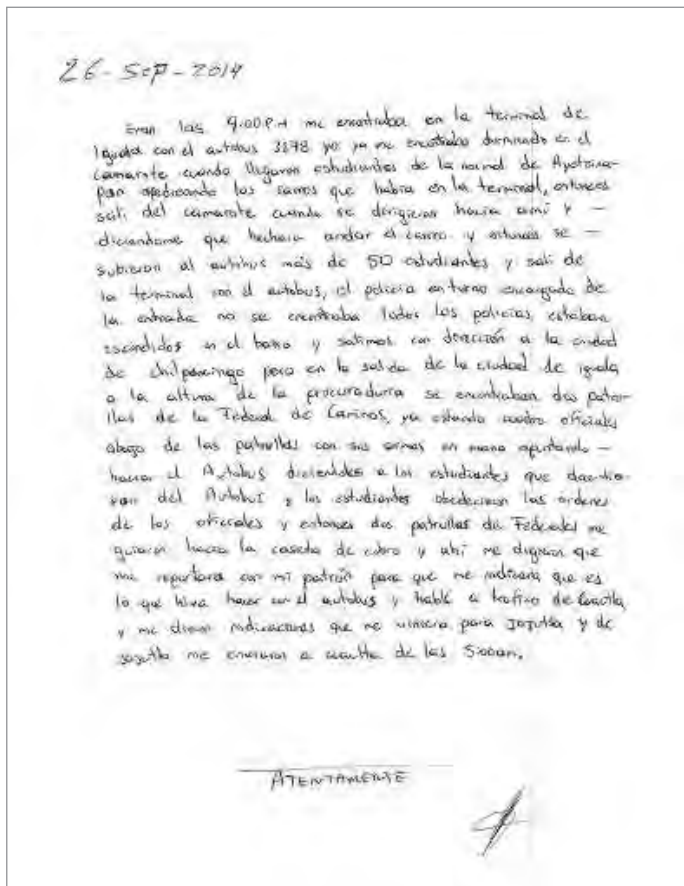 26-SEP-2014
Eran las 9:00 P.M me encontraba en la terminal de
Iguala con el autobus 3878 yo ya me encontraba durmiendo en el
camarote cuando llegaron estudiantes de la normal de Ayotzina-
pan apedreando los carros que habia en la terminal, entonces
sali del camarote cuando se dirigieron hacia ami y —
diciendome que hechara andar el carro y entonces se —
subieron al autobus más de 50 estudiantes y sali de
la terminal con el autobus, el policia en turno encargado de
la entrada no se encontraba todos los policias estaban
escondidos en el baño y salimos con dirección a la ciudad
de chilpancingo pero en la salida de la ciudad de iguala
a la altura de la procuraduria se encontraban dos patru-
llas de la Federal de Caminos, ya estando cuatro oficiales
abajo de las patrullas con sus armas en mano apuntando —
hacia el Autobus diciendoles a los estudiantes que
del Autobus y los estudiantes obedecieron las ordenes
de los oficiales y entonces dos patrullas de Federales me
guiaron hacia la caseta de cobro y ahi me digeron que
me reportara con mi patrón para que me indicara que es
lo que hiva hacer con el autobus y hablé a trafico de Cuautla
y me dieron indicaciones que me viniera para Jojutla y de
Jojutla me enviaron a cuautla de las
ATENTAMENTE